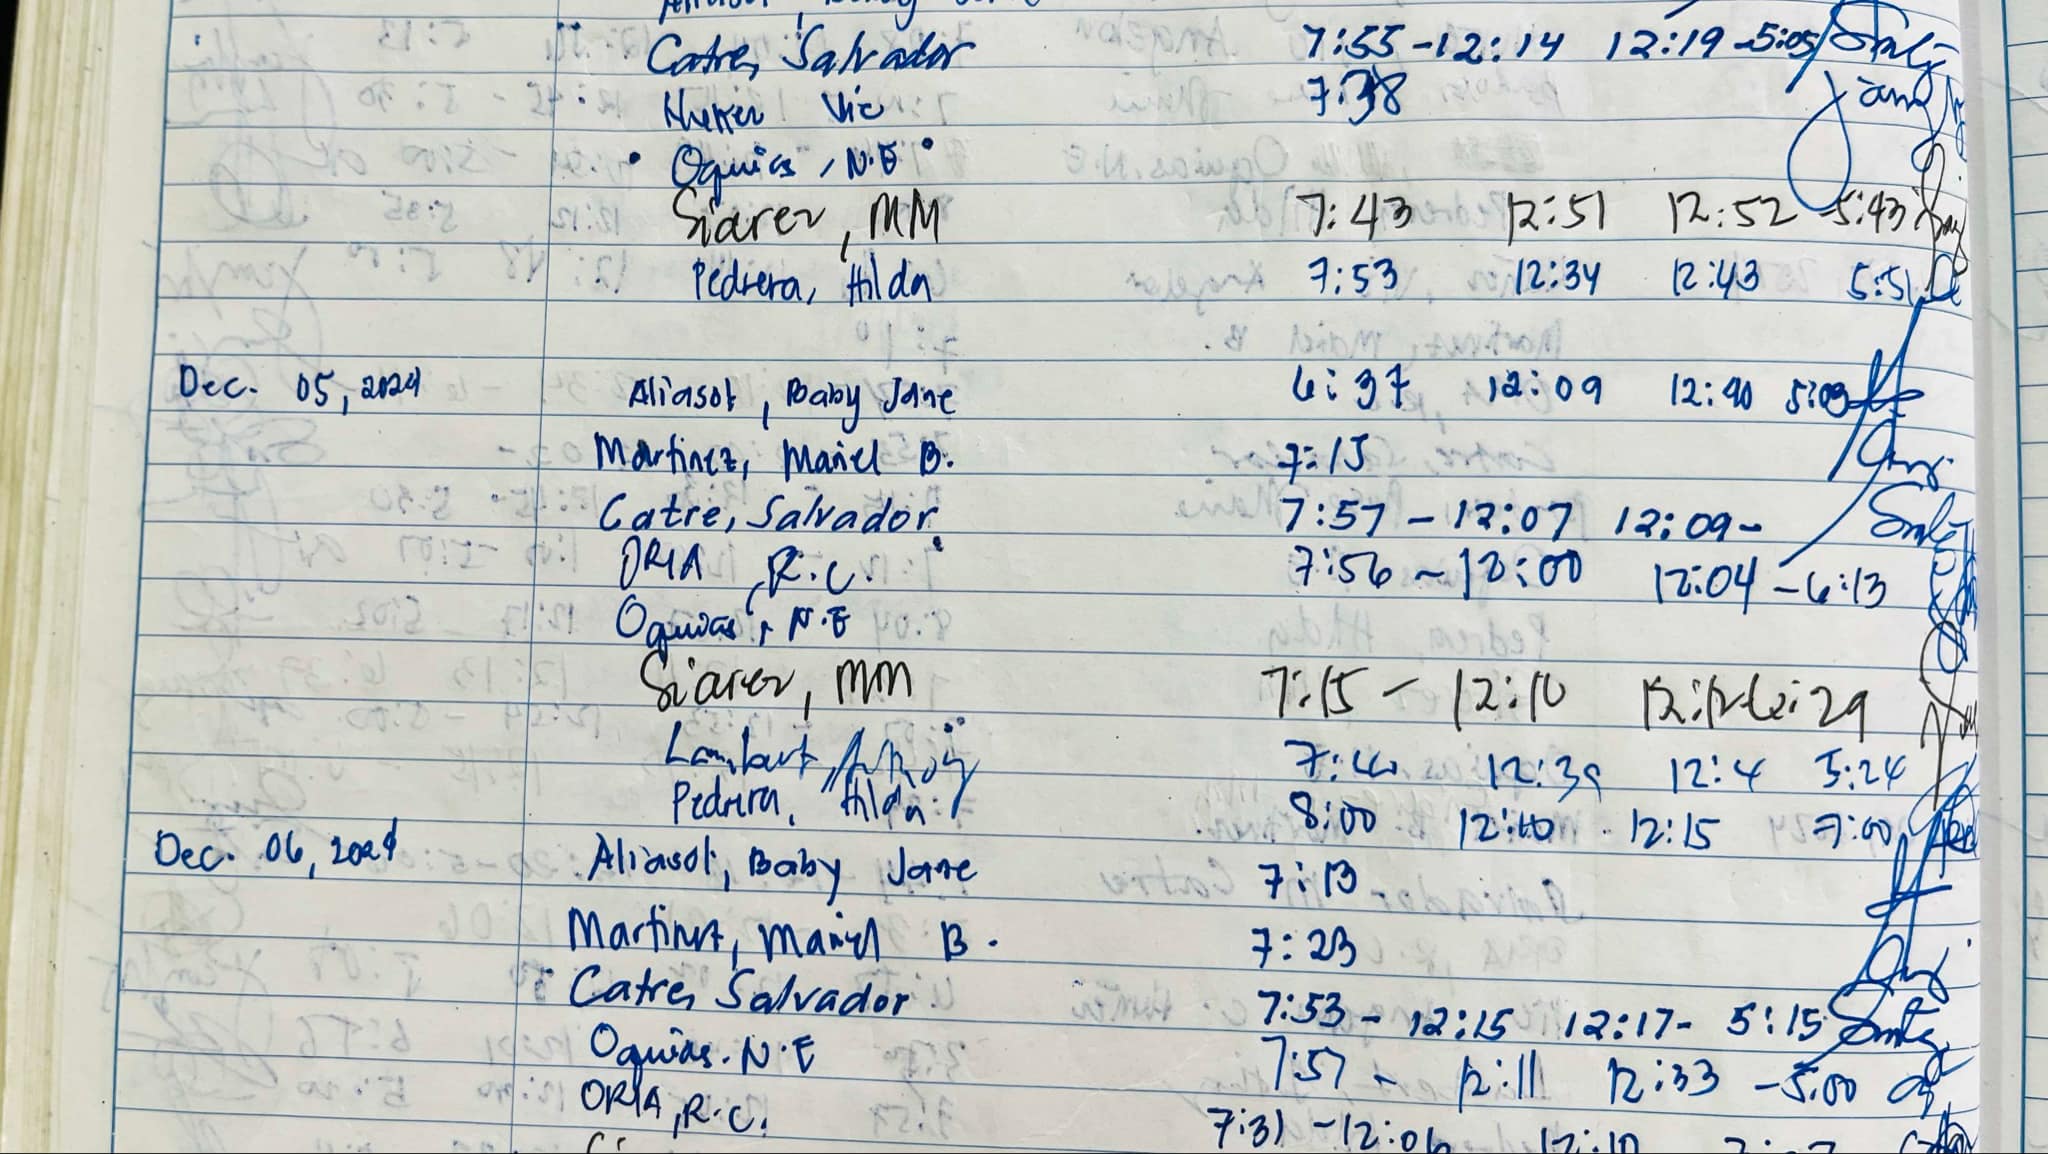 Catre, Salvador 7:55 - 12:14 12:19 - 5:05
Vic 7:38
Oquias, N.E
Siarez, MM 7:43 12:51 12:52 5:43
Pedrera, Hilda 7:53 12:34 12:43 5:51
Dec. 05, 2024 Aliasot, Baby Jane 6:37 12:09 12:40 5:03
Martinez, Mariel B. 7:15
Catre, Salvador 7:57 - 12:07 12:09 -
ORIA, R.C. 7:56 - 12:00 12:04 - 6:13
Oquias, N.E
Siarez, MM 7:15 - 12:10 12:12 - 6:29
Lambert, 7:40 12:39 12:4 5:24
Pedrera, Hilda 8:00 12:10 12:15 7:00
Dec. 06, 2024 Aliasot, Baby Jane 7:13
Martinez, Mariel B. 7:23
Catre, Salvador 7:53 - 12:15 12:17 - 5:15
Oquias. N.E 7:57 - 12:11 12:33 - 5:00
ORIA, R.C. 7:31 - 12:06 12:10